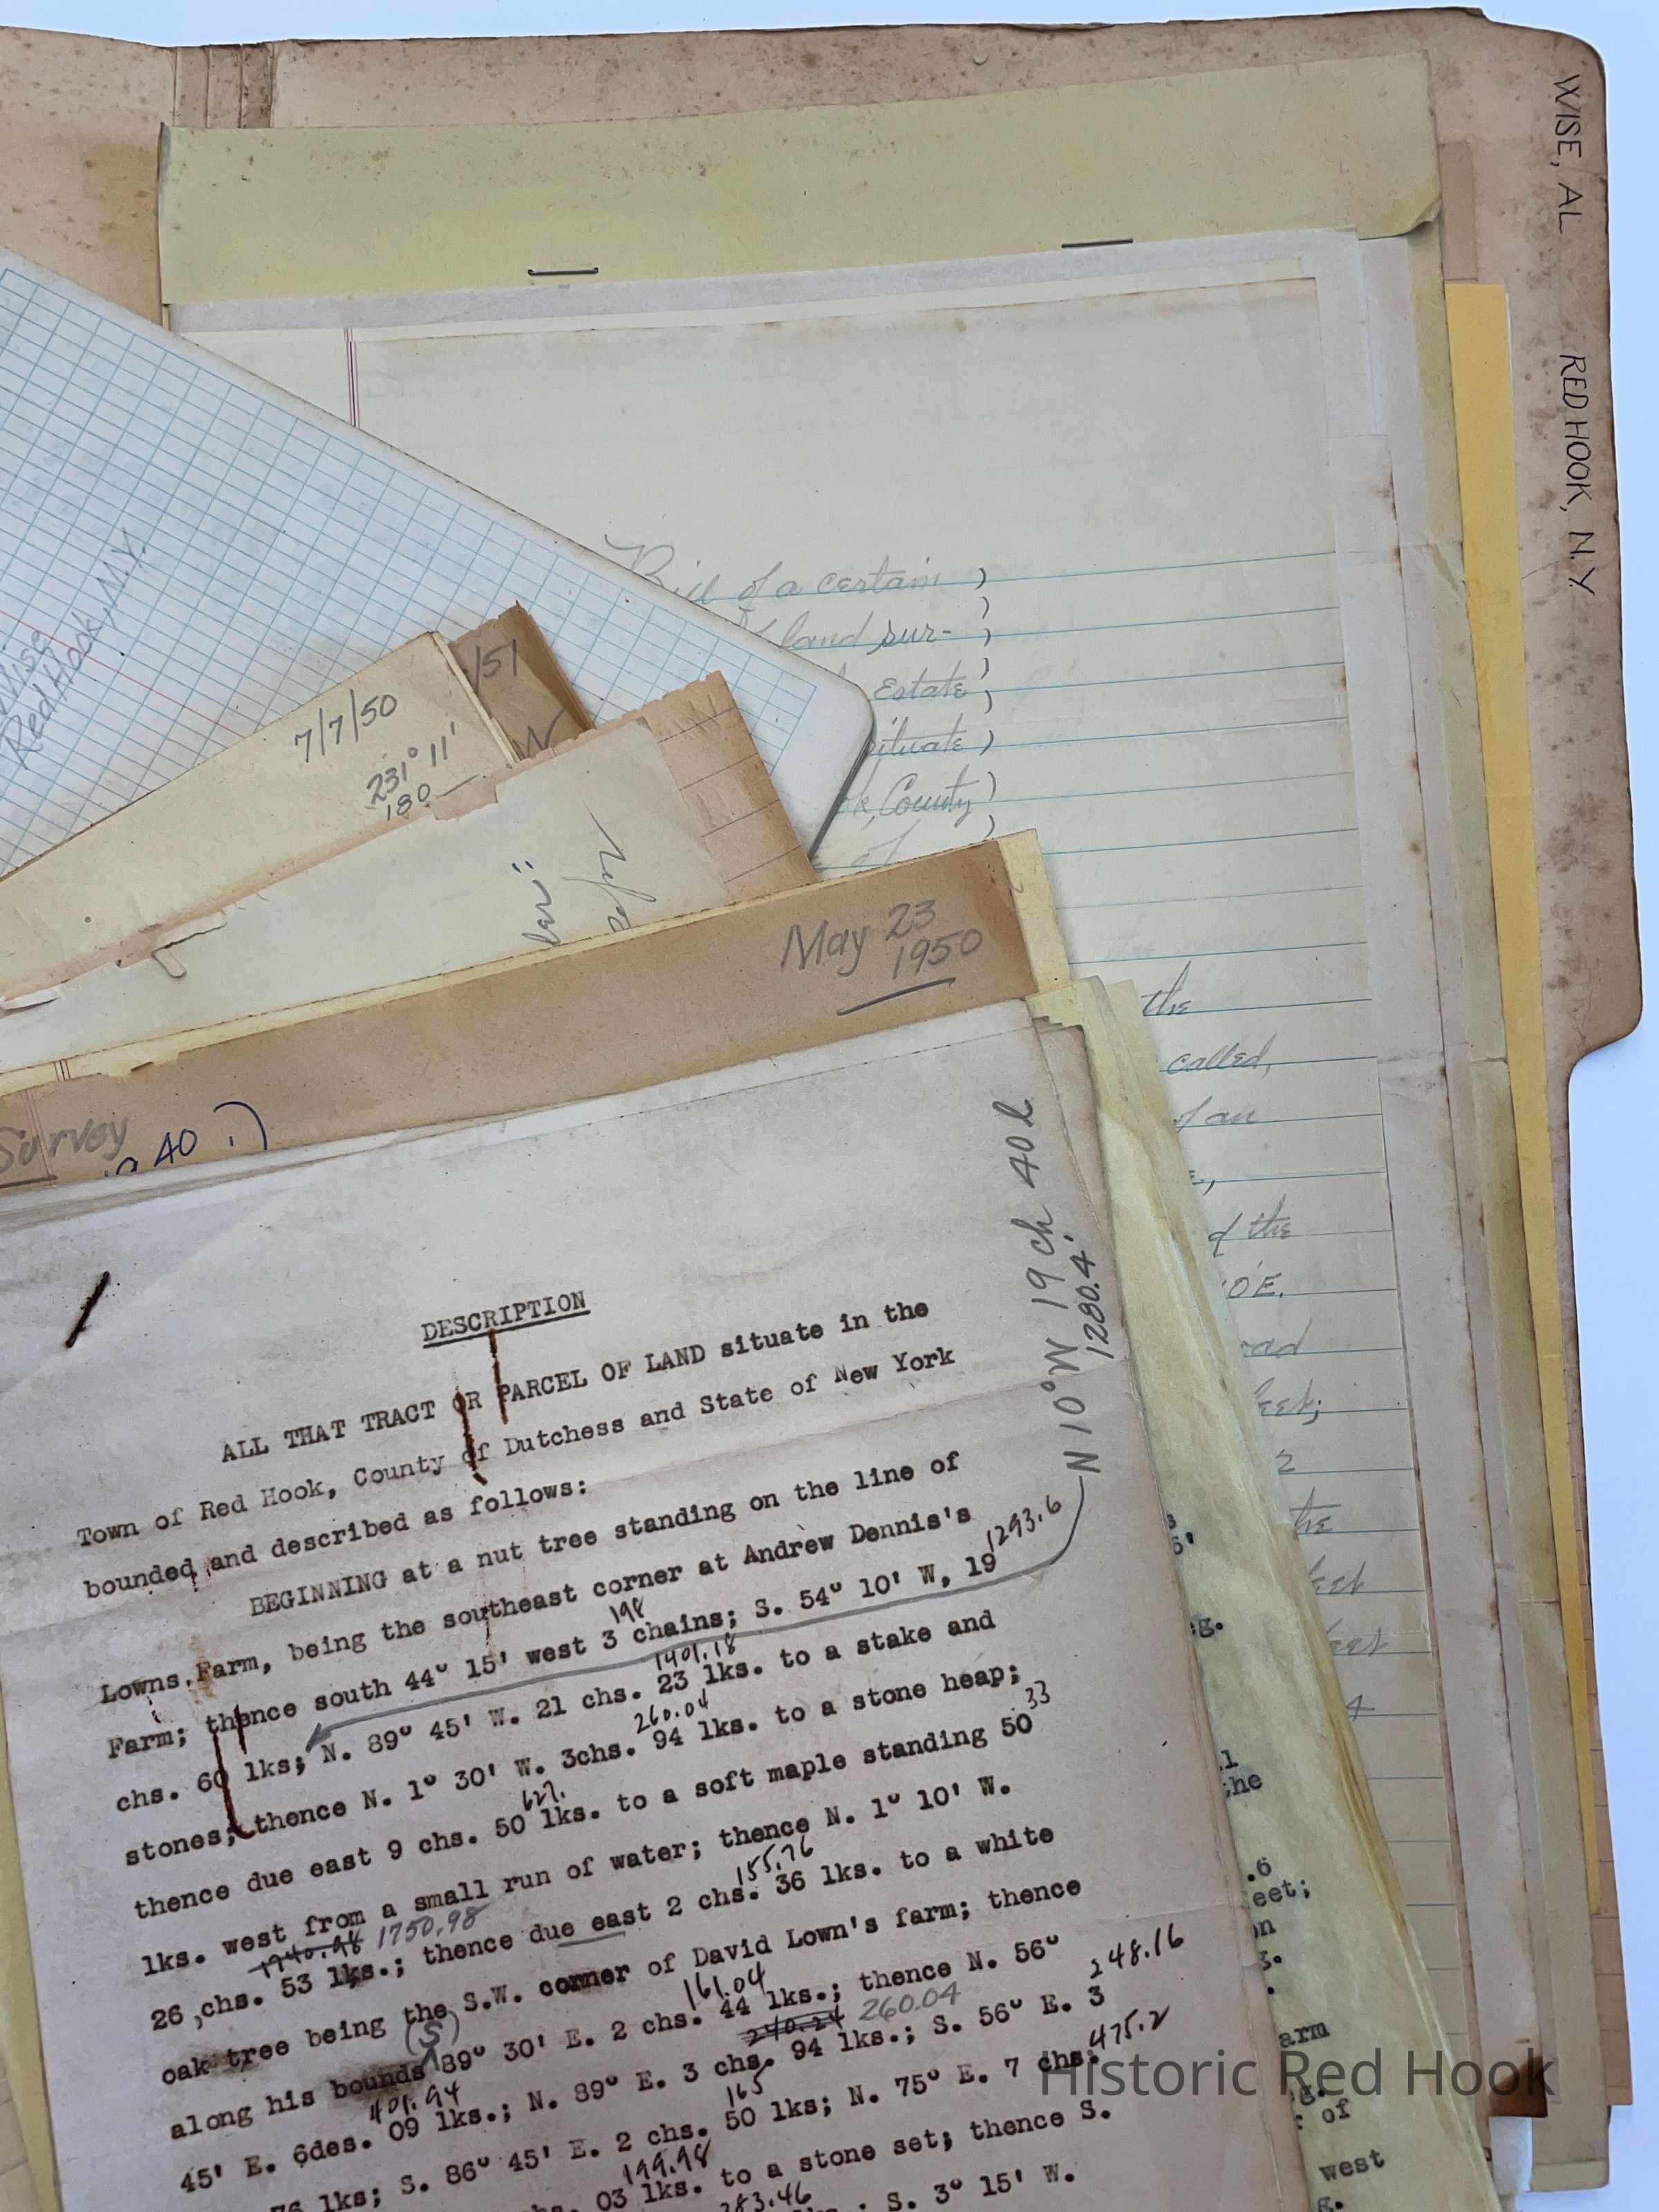 WISE, AL RED HOOK, N.Y.
of a certain )
land sur- )
Estate )
situate )
County )
of
the
called,
of an
the
OE.
2
the
Red Hook, N.Y.
7/7/50
231° 11'
180
/51
W
May 23
1950
Survey
40 .)
N 10° W 19 ch 40 l
1280.4'
DESCRIPTION
ALL THAT TRACT OR PARCEL OF LAND situate in the
Town of Red Hook, County of Dutchess and State of New York
bounded and described as follows:
BEGINNING at a nut tree standing on the line of
Lowns Farm, being the southeast corner at Andrew Dennis's
198
1293.6
Farm; thence south 44° 15' west 3 chains; S. 54° 10' W, 19
1401.18
chs. 60 lks; N. 89° 45' W. 21 chs. 23 lks. to a stake and
260.04
stones; thence N. 1° 30' W. 3chs. 94 lks. to a stone heap;
627.
33
thence due east 9 chs. 50 lks. to a soft maple standing 50
lks. west from a small run of water; thence N. 1° 10' W.
1740.98 1750.98
155.76
26 chs. 53 lks.; thence due east 2 chs. 36 lks. to a white
oak tree being the S.W. corner of David Lown's farm; thence
(S)
161.04
along his bounds 89° 30' E. 2 chs. 44 lks.; thence N. 56°
401.94
240.24 260.04
248.16
45' E. 6des. 09 lks.; N. 89° E. 3 chs. 94 lks.; S. 56° E. 3
165
475.2
76 lks; S. 86° 45' E. 2 chs. 50 lks; N. 75° E. 7 chs.
199.98
03 lks. to a stone set; thence S.
283.46
S. 3° 15' W.
the
.6
eet;
on
arm
of
west
Historic Red Hook